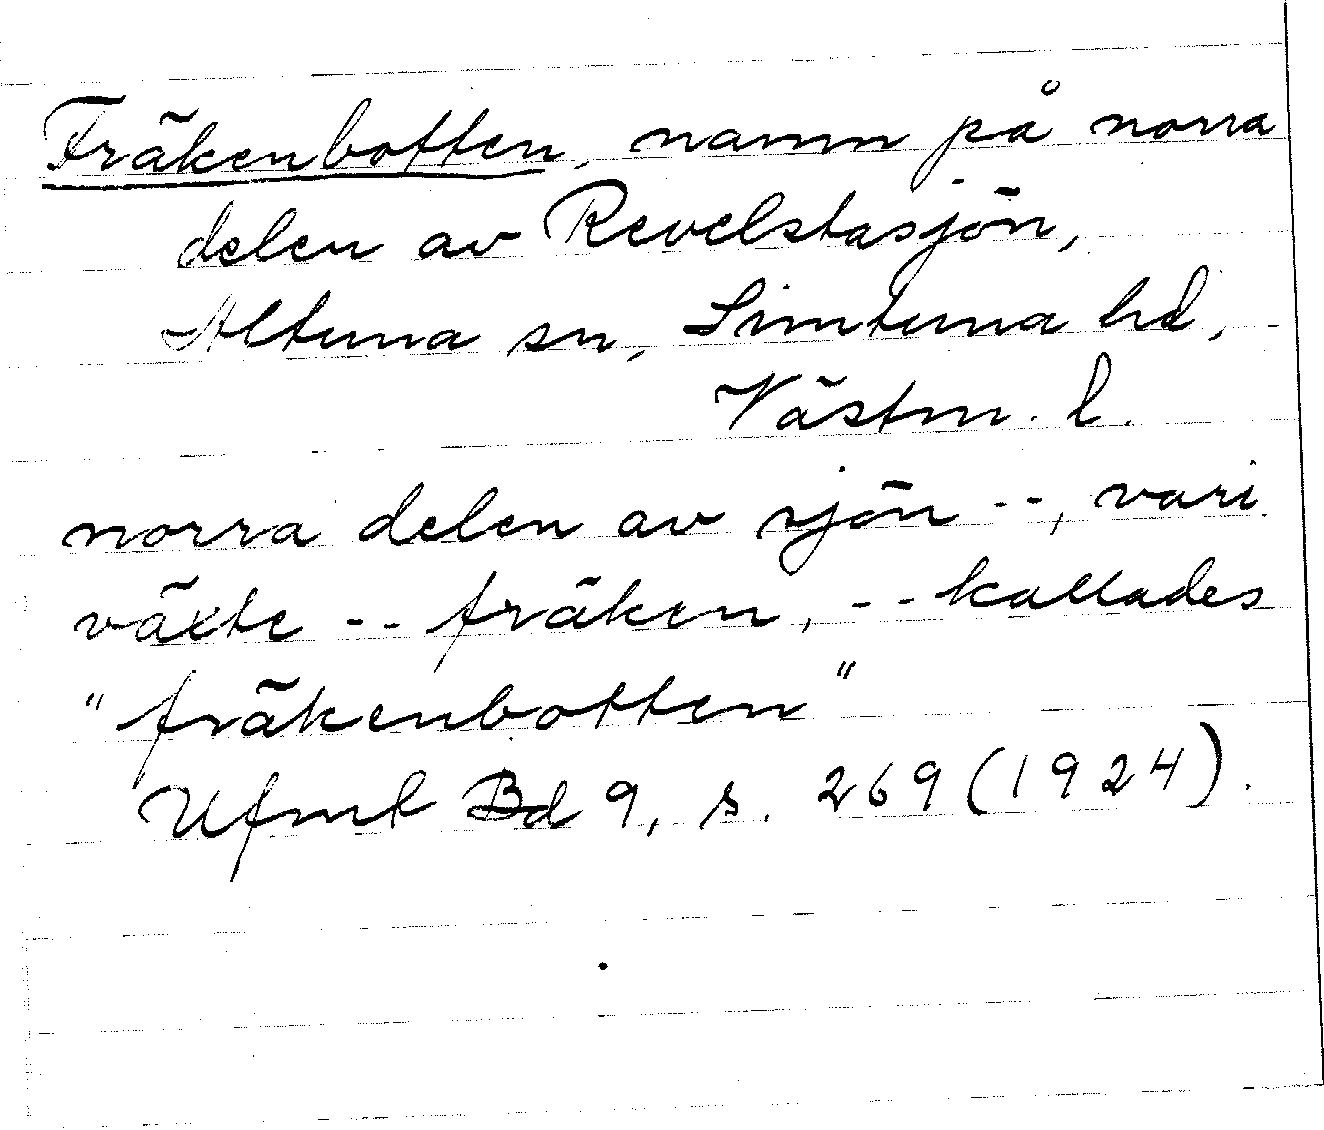 Fräkenbotten, namn på norra
delen av Revelstasjön,
Altuna sn, Simtuna hd,
Västm. l.
norra delen av sjön --, vari
växte -- fräken, -- kallades
"fräkenbotten"
Ufmt Bd 9, s. 269 (1924).